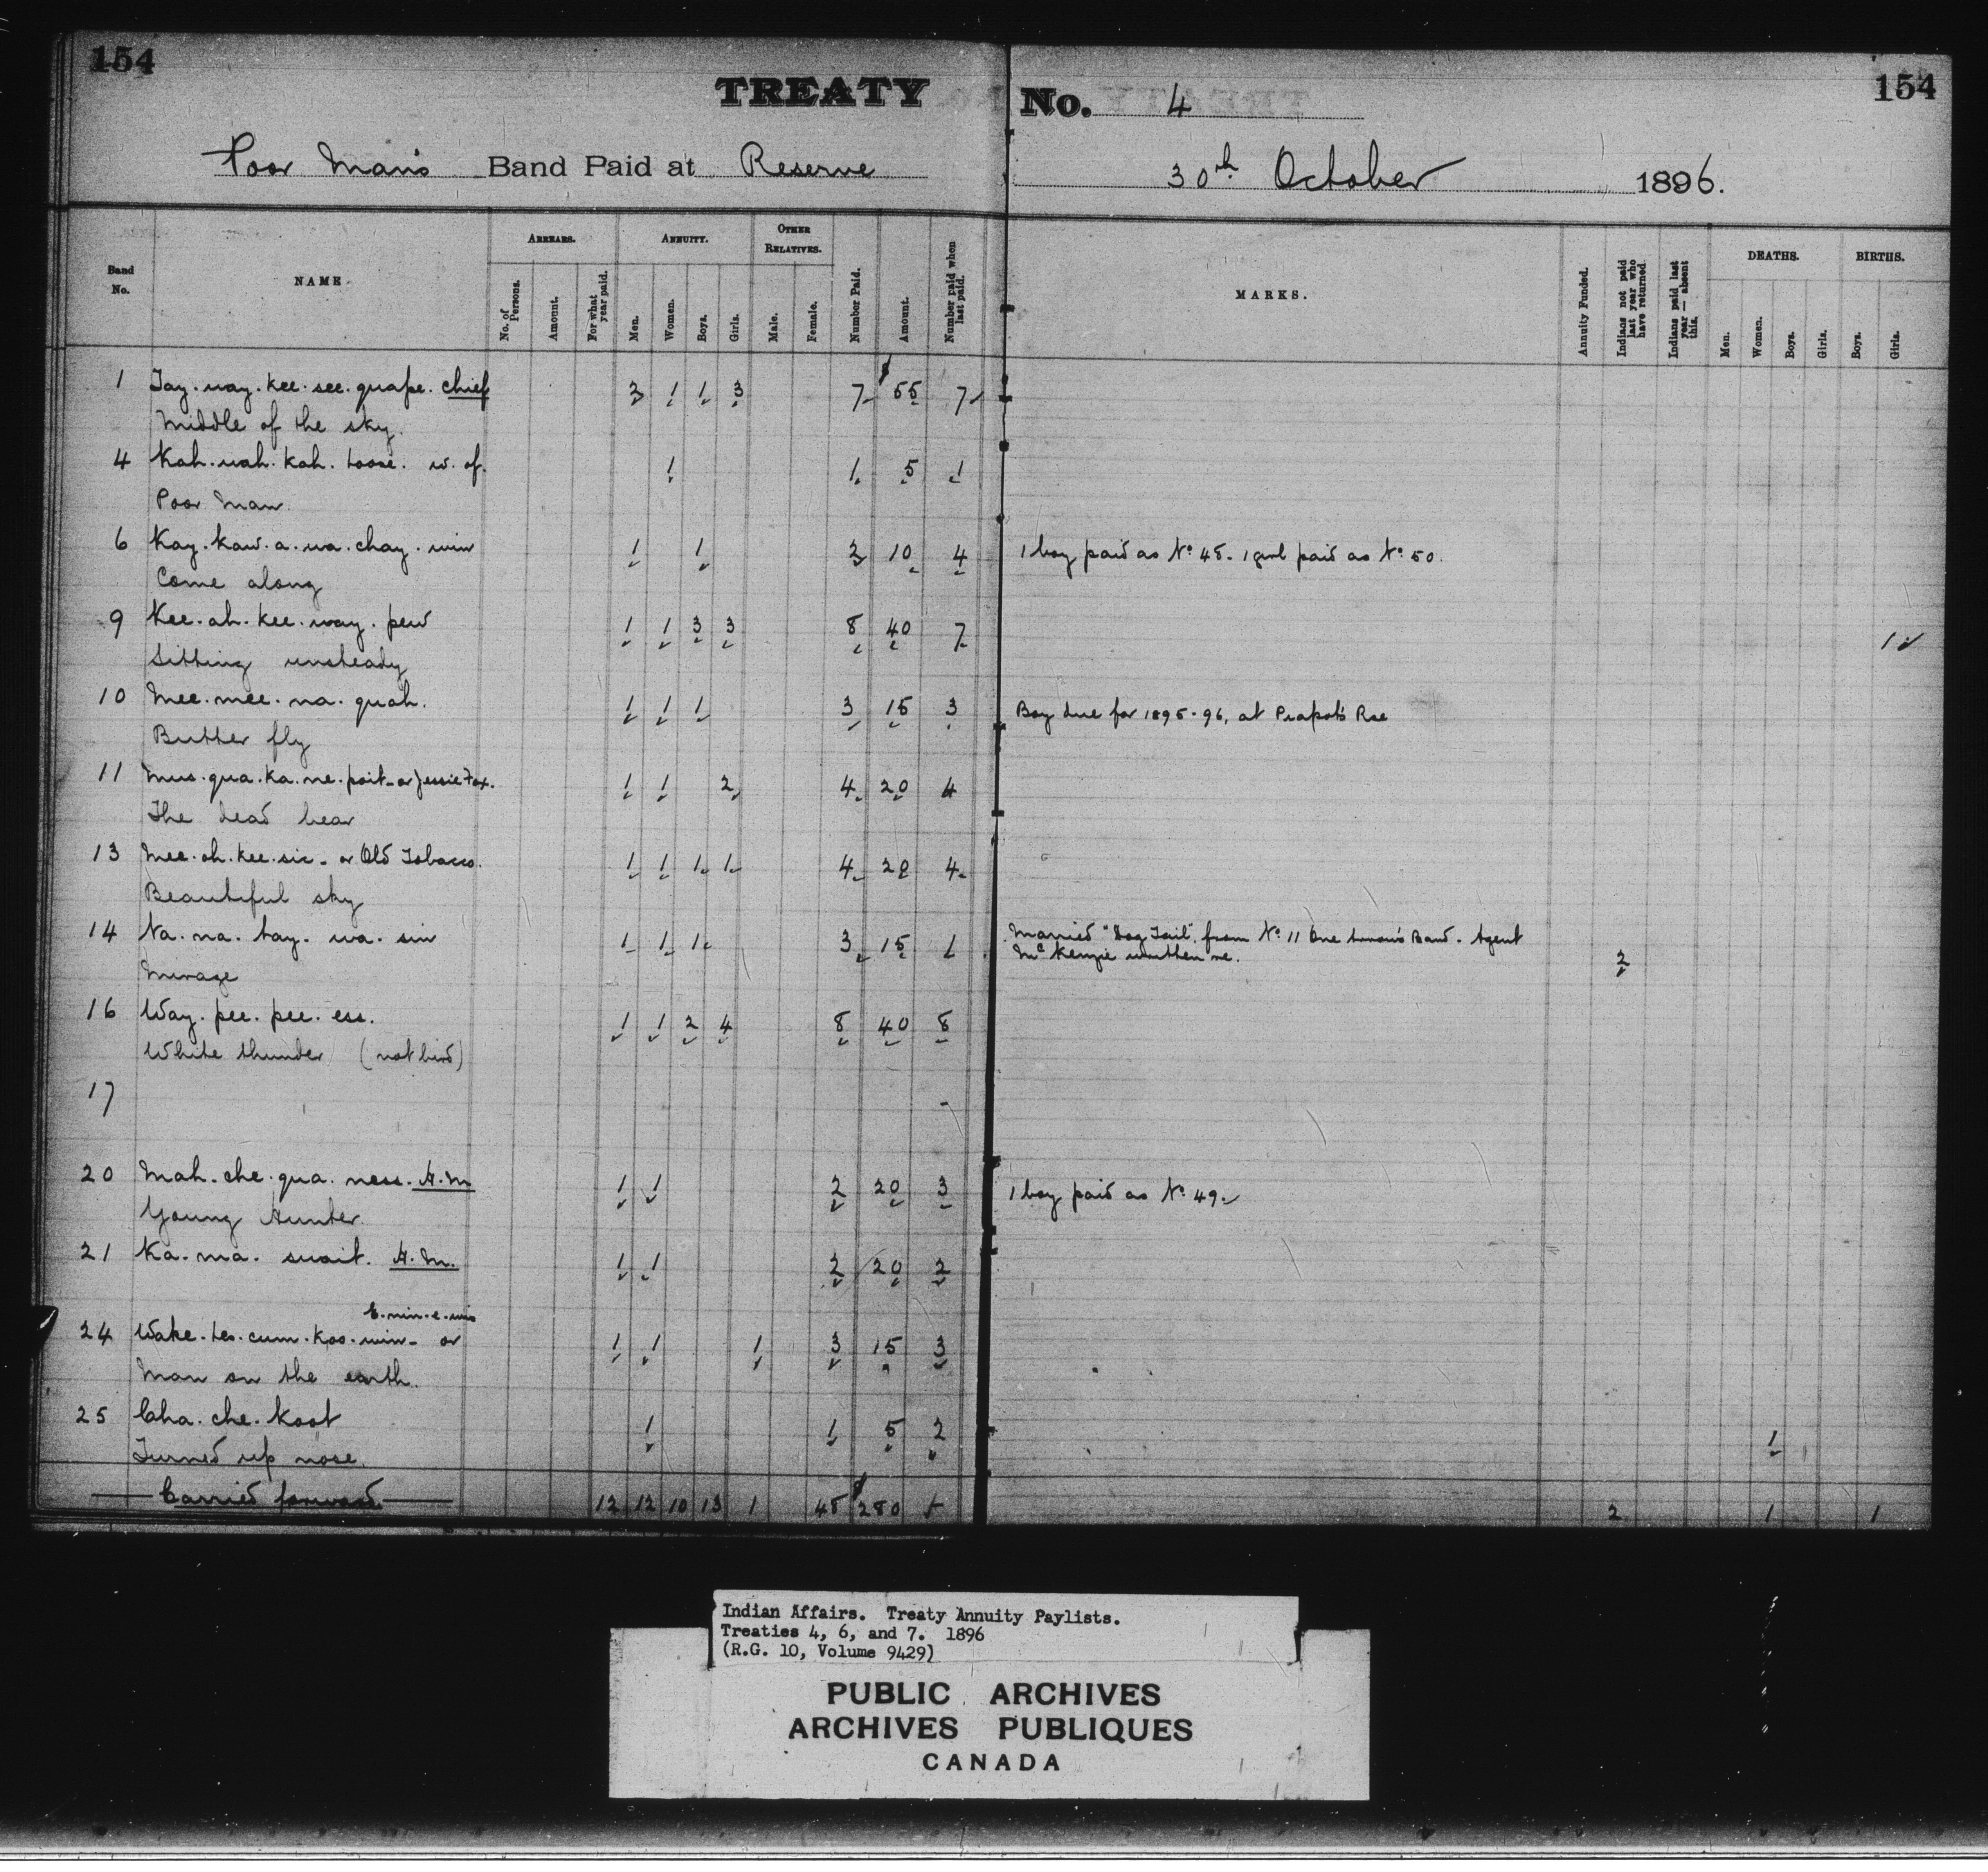 154
TREATY No. 4
154
Poor Man's Band Paid at Reserve 30th October 1896.
Band No. NAME ARREARS. ANNUITY. OTHER RELATIVES. Number Paid. Amount. Number paid when last paid. MARKS. Annuity Funded. Indians not paid last year who have returned. Indians paid last year — absent this. DEATHS. BIRTHS.
No. of Persons. Amount. For what year paid. Men. Women. Boys. Girls. Male. Female. Men. Women. Boys. Girls. Boys. Girls.
1 Tay.way.kee.see.quape. Chief 2 1 1 3 7 $55 7
Middle of the sky.
4 Kah.wah.kah.toose. w. of. 1 1 5 1
Poor Man
6 Kay.kaw.a.wa.chay.win 1 1 2 10 4 1 boy paid as No. 48. 1 girl paid as No. 50.
Come along
9 Kee.ah.kee.way.pew 1 1 3 3 8 40 7 1
Sitting unsteady
10 Mee.mee.na.quah. 1 1 1 3 15 3 Boy due for 1895.96, at Piapot's Rse
Butter fly
11 Mus.qua.ka.ne.poit - or Jessie Fox. 1 1 2 4 20 4
The dead bear
13 Mee.oh.kee.sic - or Old Tobacco. 1 1 1 1 4 20 4
Beautiful sky
14 Na.na.tay.wa.sin 1 1 1 3 15 1 Married "Dog Tail", from No. 11 One Arrow's Band. Agent
Mirage McKenzie written re. 2
16 Way.pee.pee.ess. 1 1 2 4 8 40 8
White thunder (not bird)
17 -
20 Mah.che.qua.ness. H.M 1 1 2 20 3 1 boy paid as No. 49.
Young Hunter
21 Ka.ma.swait. H.M. 1 1 2 20 2
E.nin.e.win
24 Wake.tes.cum.koo.win - or 1 1 1 3 15 3
Man on the earth.
25 Cha.che.koot 1 1 5 2 1
Turned up nose.
Carried forward 12 12 10 13 1 48 $280 2 1 1
Indian Affairs. Treaty Annuity Paylists.
Treaties 4, 6, and 7. 1896
(R.G. 10, Volume 9429)
PUBLIC ARCHIVES
ARCHIVES PUBLIQUES
CANADA